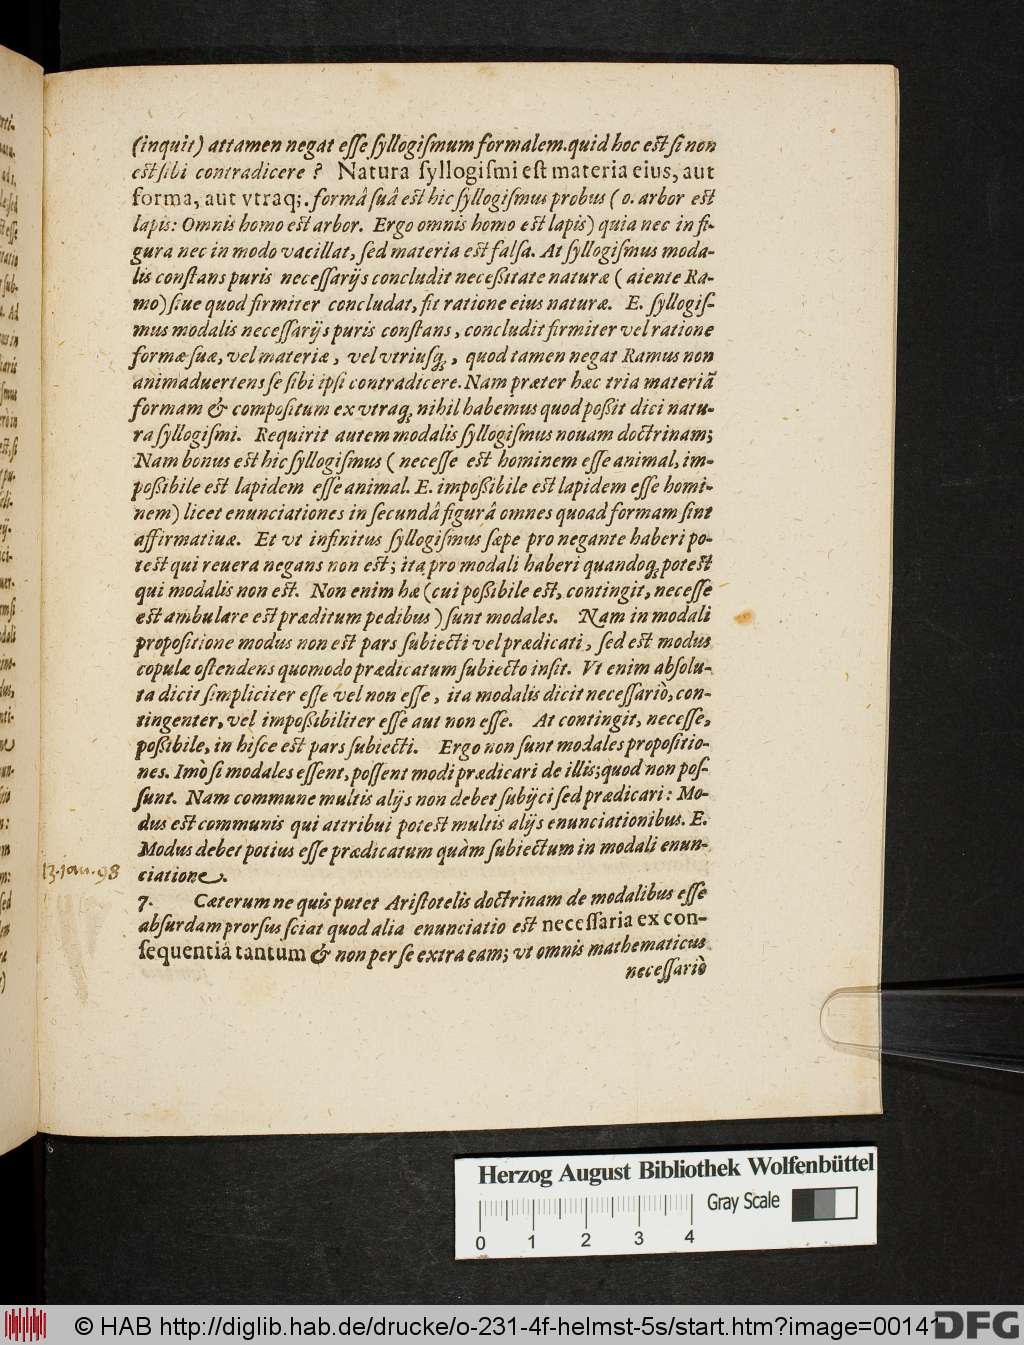 (inquit) attamen negat eſſe ſyllogiſmum formalem. quid hoc eſt ſi non
eſt ſibi contradicere? Natura ſyllogiſmi eſt materia eius, aut
forma, aut vtraq;. formâ ſuâ eſt hic ſyllogiſmus probus (o. arbor eſt
lapis: Omnis homo eſt arbor. Ergo omnis homo eſt lapis) quia nec in fi-
gura nec in modo vacillat, ſed materia eſt falſa. At ſyllogiſmus moda-
lis conſtans puris neceſſarijs concludit neceßitate naturæ (aiente Ra-
mo) ſiue quod firmiter concludat, fit ratione eius naturæ. E. ſyllogiſ-
mus modalis neceſſarijs puris conſtans, concludit firmiter vel ratione
formæ ſuæ, vel materiæ, vel vtriuſq;, quod tamen negat Ramus non
animaduertens ſe ſibi ipſi contradicere. Nam præter hæc tria materiã
formam & compoſitum ex vtraq; nihil habemus quod poßit dici natu-
ra ſyllogiſmi. Requirit autem modalis ſyllogiſmus nouam doctrinam;
Nam bonus eſt hic ſyllogiſmus (neceſſe eſt hominem eſſe animal, im-
poßibile eſt lapidem eſſe animal. E. impoßibile eſt lapidem eſſe homi-
nem) licet enunciationes in ſecundâ figurâ omnes quoad formam ſint
affirmatiuæ. Et vt infinitus ſyllogiſmus ſæpe pro negante haberi po-
teſt qui reuera negans non eſt; ita pro modali haberi quandoq; poteſt
qui modalis non eſt. Non enim hæ (cui poßibile eſt, contingit, neceſſe
eſt ambulare eſt præditum pedibus) ſunt modales. Nam in modali
propoſitione modus non eſt pars ſubiecti vel prædicati, ſed eſt modus
copulæ oſtendens quomodo prædicatum ſubiecto inſit. Vt enim abſolu-
ta dicit ſimpliciter eſſe vel non eſſe, ita modalis dicit neceſſariò, con-
tingenter, vel impoßibiliter eſſe aut non eſſe. At contingit, neceſſe,
poßibile, in hiſce eſt pars ſubiecti. Ergo non ſunt modales propoſitio-
nes. Imò ſi modales eſſent, poſſent modi prædicari de illis; quod non poſ-
ſunt. Nam commune multis alijs non debet ſubijci ſed prædicari: Mo-
dus eſt communis qui attribui poteſt multis alijs enunciationibus. E.
Modus dèbet potius eſſe prædicatum quàm ſubiectum in modali enun-
13. jan. 98
ciatione.
7. Cæterum ne quis putet Ariſtotelis doctrinam de modalibus eſſe
abſurdam prorſus ſciat quod alia enunciatio eſt neceſſaria ex con-
ſequentiâ tantum & non per ſe extra eam; vt omnis mathematicus
neceſſariò
Herzog August Bibliothek Wolfenbüttel
Gray Scale
0 1 2 3 4
© HAB http://diglib.hab.de/drucke/o-231-4f-helmst-5s/start.htm?image=00141
DFG